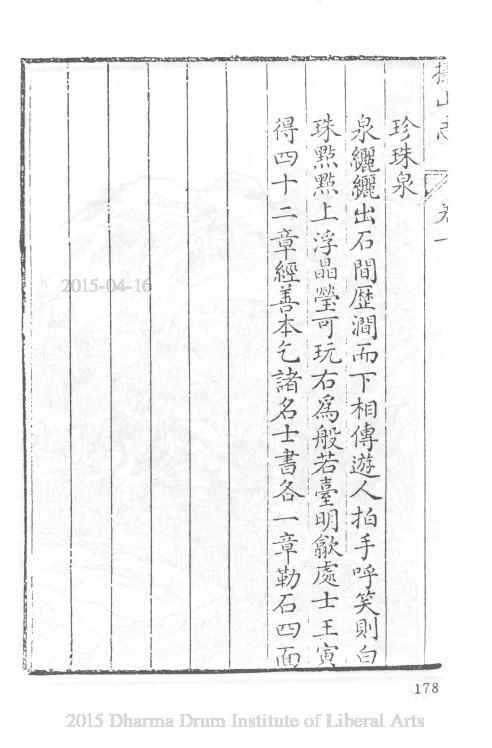 攝山志
卷一
珍珠泉
泉纚纚出石間歷澗而下相傳遊人拍手呼笑則白
珠點點上浮晶瑩可玩右爲般若臺明歙處士王寅
得四十二章經善本乞諸名士書各一章勒石四面
178
2015-04-16
2015 Dharma Drum Institute of Liberal Arts